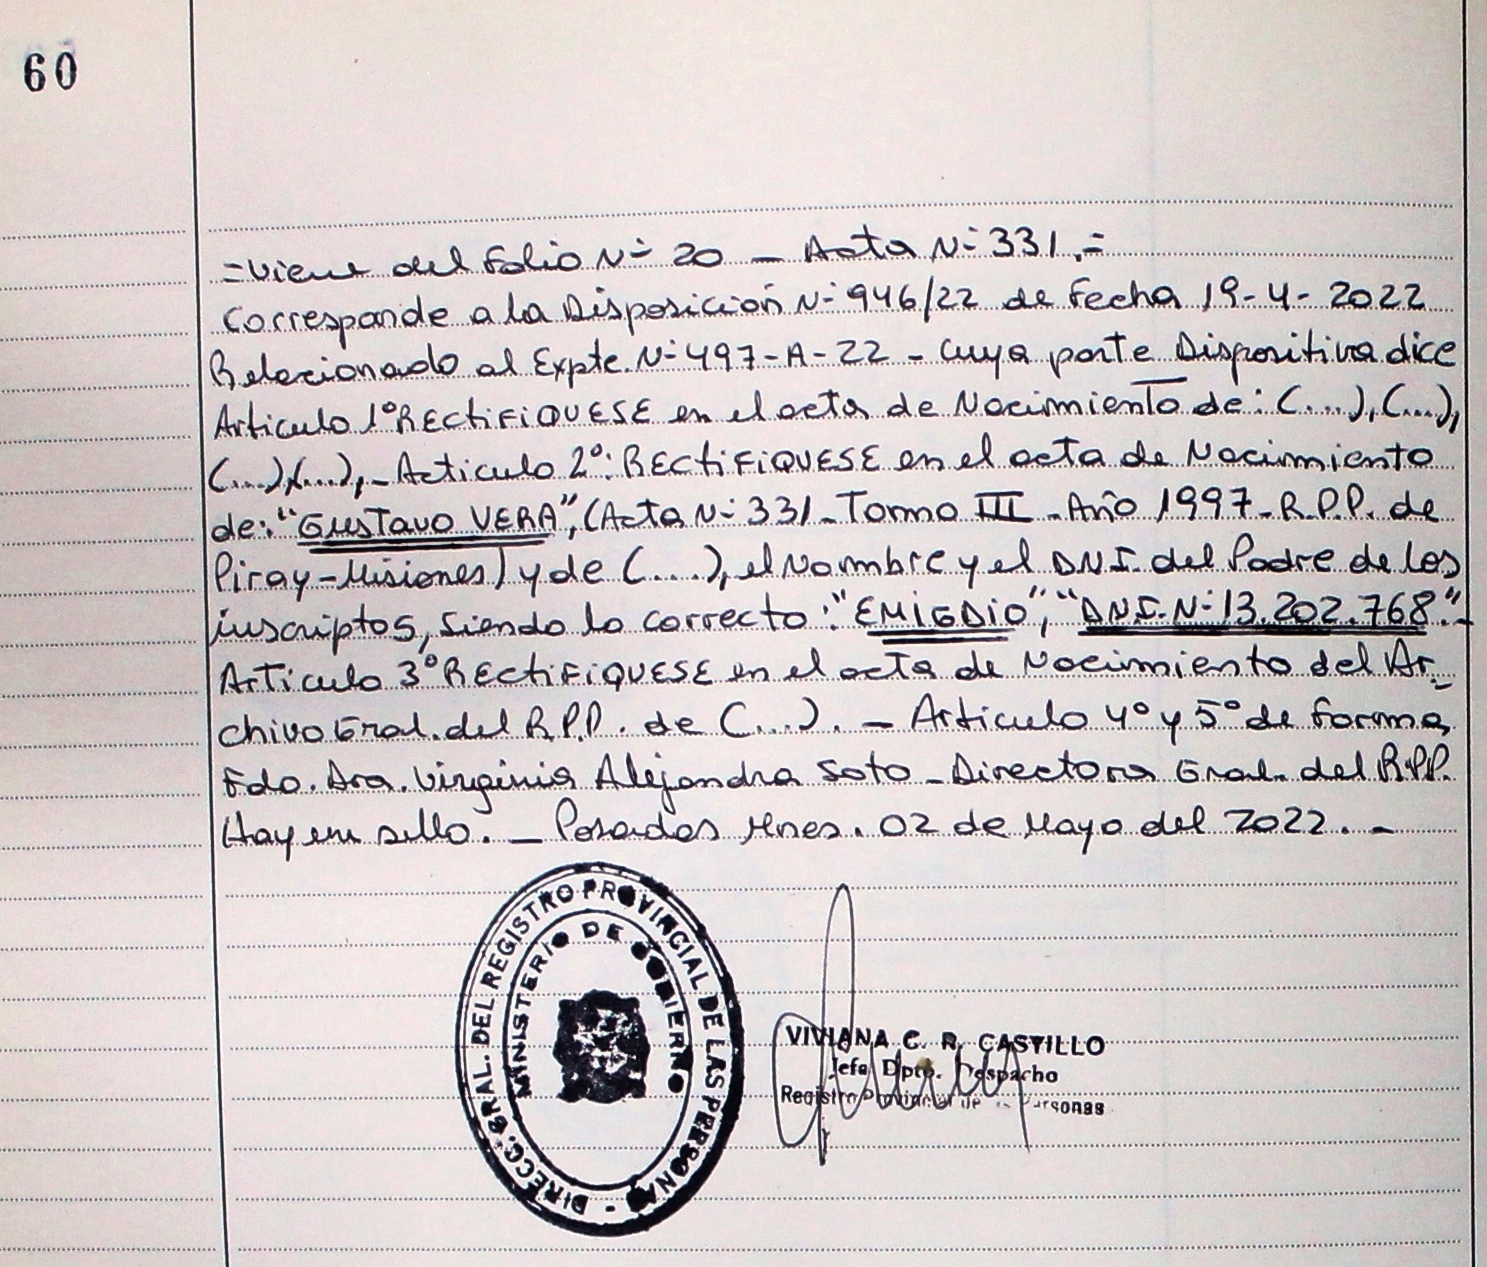 60
=Viene del Folio Nº 20 – Acta Nº 331.=
Corresponde a la Disposición Nº 946/22 de Fecha 19-4-2022
Relacionado al Expte. Nº 497-A-22 - Cuya parte Dispositiva dice
Articulo 1º RECTIFIQUESE en el acta de Nacimiento de: (....), (....),
(....),(....), - Articulo 2º: RECTIFIQUESE en el acta de Nacimiento
de: "GUSTAVO VERA", (Acta Nº 331 - Tomo III - Año 1997 - R.P.P. de
Piray - Misiones) y de (....), el Nombre y el DNI. del Padre de los
inscriptos, siendo lo correcto: "EMIGDIO", "DNI. Nº 13.202.768".-
Articulo 3º RECTIFIQUESE en el acta de Nacimiento del Ar-
chivo Gral. del R.P.P. de (....). – Articulo 4º y 5º de forma,
Fdo. Dra. Virginia Alejandra Soto - Directora Gral. del R.P.P.
Hay un sello. – Posadas Mnes. 02 de Mayo del 2022. -
DIRECC. GRAL. DEL REGISTRO PROVINCIAL DE LAS PERSONAS -
MINISTERIO DE GOBIERNO
VIVIANA C. R. CASTILLO
Jefa Dpto. Despacho
Registro Provincial de las Personas